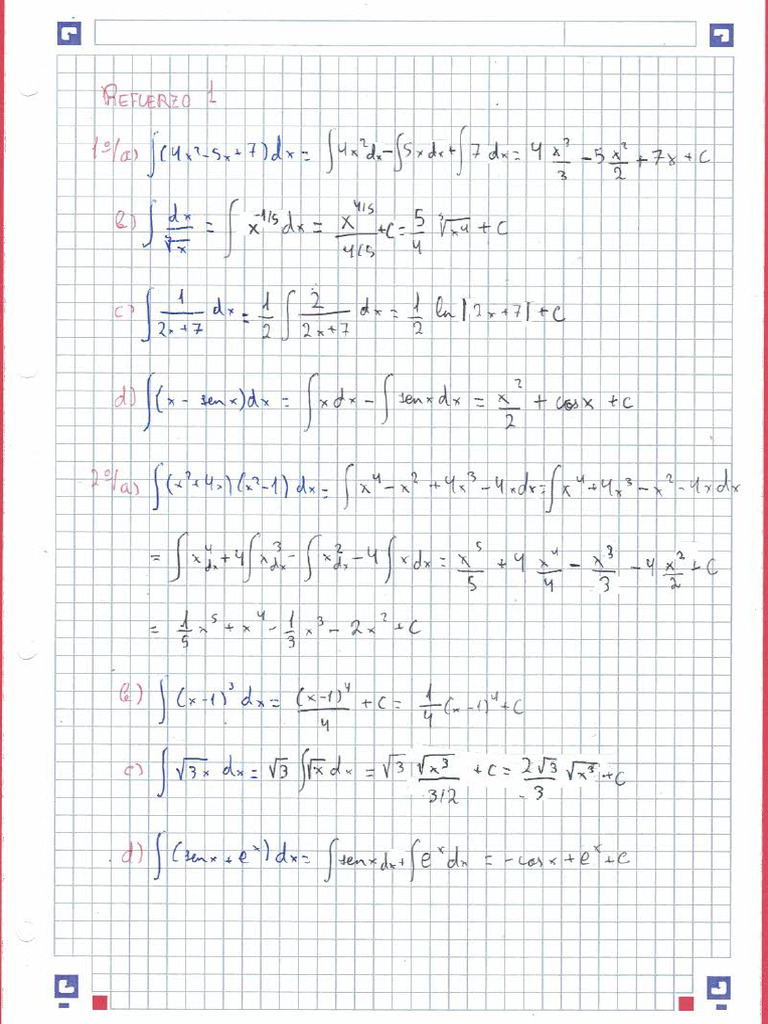 REFUERZO 1
1º/a) ∫(4x²-5x+7)dx = ∫4x²dx - ∫5xdx + ∫7dx = 4 x³/3 - 5 x²/2 + 7x + C
b) ∫ dx/⁵√x = ∫ x^(-1/5) dx = x^(4/5)/(4/5) + C = 5/4 ⁵√x⁴ + C
c) ∫ 1/(2x+7) dx = 1/2 ∫ 2/(2x+7) dx = 1/2 ln|2x+7| + C
d) ∫(x - senx)dx = ∫xdx - ∫senxdx = x²/2 + cosx + C
2º/a) ∫(x²+4x)(x²-1)dx = ∫x⁴-x²+4x³-4xdx = ∫x⁴+4x³-x²-4xdx
= ∫x⁴dx + 4∫x³dx - ∫x²dx - 4∫xdx = x⁵/5 + 4 x⁴/4 - x³/3 - 4 x²/2 + C
= 1/5 x⁵ + x⁴ - 1/3 x³ - 2x² + C
b) ∫(x-1)³dx = (x-1)⁴/4 + C = 1/4 (x-1)⁴ + C
c) ∫√3x dx = √3 ∫√x dx = √3 √x³/(3/2) + C = 2√3/3 √x³ + C
d) ∫(senx+eˣ)dx = ∫senxdx + ∫eˣdx = -cosx + eˣ + C